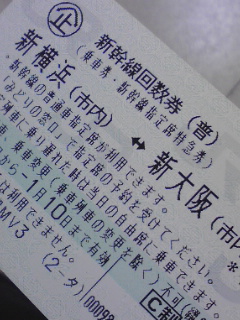 企
新幹線回数券（普）
（乗車券・新幹線指定席特急券）
新横浜（市内）↔新大阪（市内
・新幹線の普通車指定席が利用できます。
「みどりの窓口」で指定席の予約を受けてください。
列車に乗り遅れた時は当日の自由席に乗車できます。
乗車変更（乗車列車の変更を除く）不可
から-1月10日まで有効
は利用できません。
MV3
（2-タ）
C制